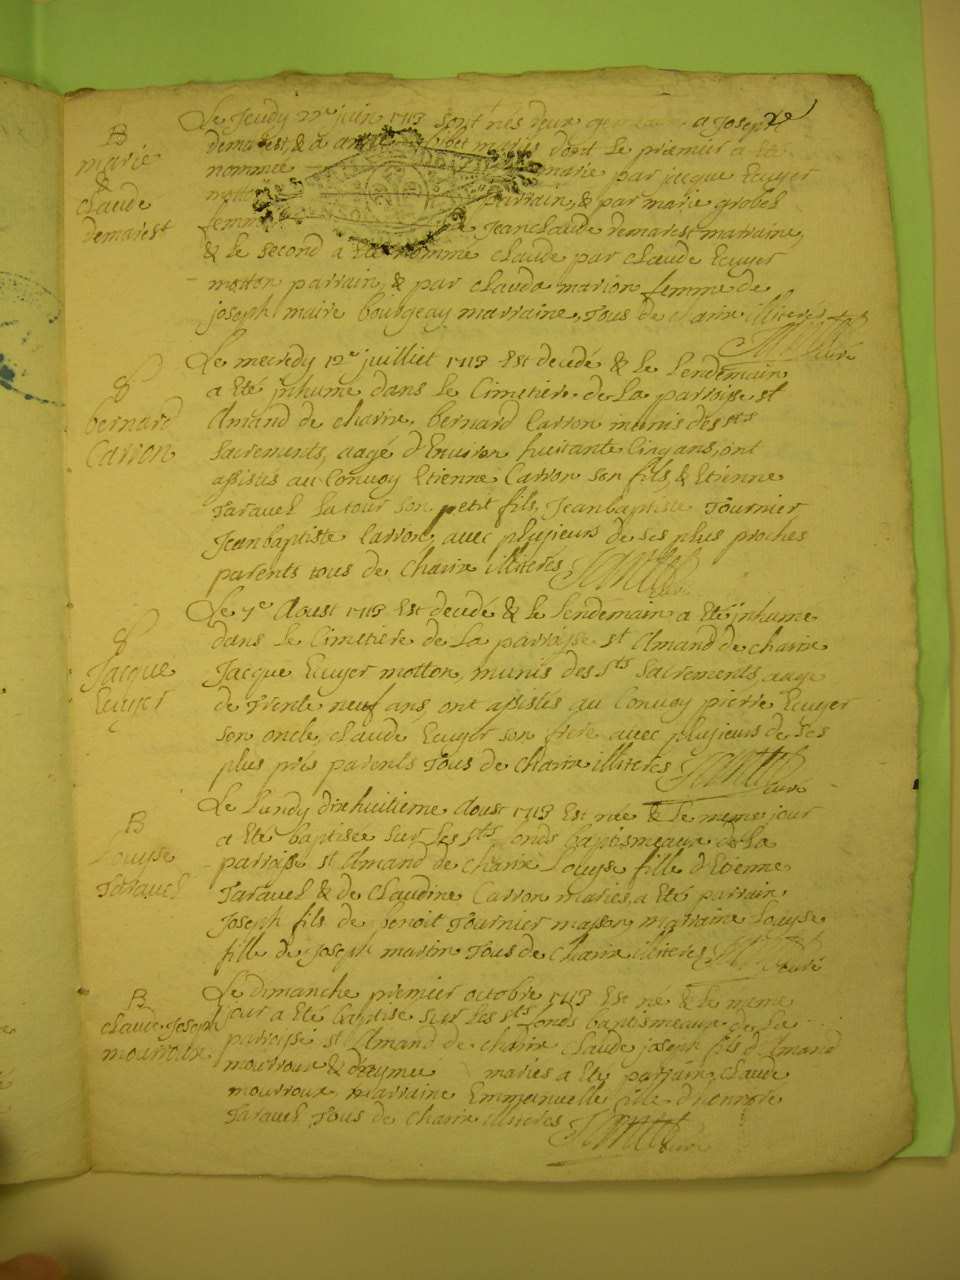 B
marie
&
claude
demarest
Le Jeudy 22e juin 1713 sont nés deux a Joseph
demarest, & a mariés dont le premier a été
nommé marie par jacque Ecuyer
motton parrain, & par marie grobel
femme de Jeanclaude demarest marraine,
& le second a été nommé claude par claude Ecuyer
motton parrain, & par clauda marion femme de
joseph maire bourgeay marraine, Tous de chairie illiterés
curé
&
bernard
Carron
Le mecredy 12e juilliet 1713 Est decedé & le lendemain
a été inhumé dans le Cimetiere de La parroisse st
Amand de chairie, bernard Carron munis des sts
sacrements, aagé d'Environ huitante Cinq ans, ont
assistés au Convoy Etienne Carron son fils, & Etienne
Taravel Latour son petit fils, Jeanbaptiste Tournier
Jeanbaptiste Carron, avec plusieurs de ses plus proches
parents tous de chairie illiterés
curé
&
Jacque
Ecuyer
Le 7e Aoust 1713 Est decedé & le lendemain a été inhumé
dans le Cimetiere de La parroisse st Amand de chairie
Jacque Ecuyer motton, munis des Sts Sacrements, aagé
de Trente neuf ans, ont assistés au Convoy pierre Ecuyer
son oncle, claude Ecuyer son frere avec plusieurs de ses
plus pres parents Tous de chairie illiterés
curé
B
Louyse
Taravel
Le Lundy dixhuitieme Aoust 1713 Est née & le meme jour
a été baptisée sur les sts fonds baptismeaux de La
parroisse st Amand de chairie Louyse fille d'Etienne
Taravel & de claudine Carron mariés, a été parrain
Joseph fils de benoit Tournier masson, marraine Louyse
fille de joseph martin Tous de chairie illiterés
curé
B
claude Joseph
mourroux
Le Dimanche premier octobre 1713 Est né & le meme
jour a été baptisé sur les sts fonds baptismeaux de La
parroisse st Amand de chairie claude joseph fils d'Amand
mourroux & d'aymée mariés a été parrain claude
mourroux marraine Emmanuelle fille d'honnoré
Taravel Tous de chairie illiterés
curé